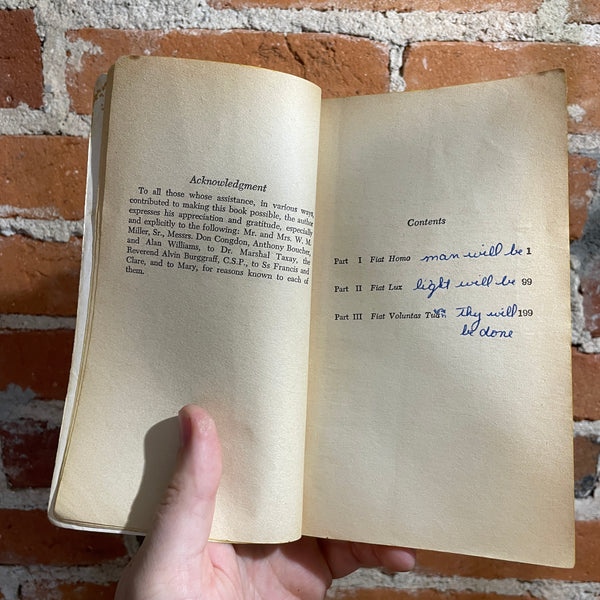 Acknowledgment
To all those whose assistance, in various ways,
contributed to making this book possible, the author
expresses his appreciation and gratitude, especially
and explicitly to the following: Mr. and Mrs. W. M.
Miller, Sr., Messrs. Don Congdon, Anthony Boucher,
and Alan Williams, to Dr. Marshal Taxay, the
Reverend Alvin Burggraff, C.S.P., to Ss Francis and
Clare, and to Mary, for reasons known to each of
them.
Contents
Part I Fiat Homo man will be 1
Part II Fiat Lux light will be 99
Part III Fiat Voluntas Tua thy will 199
be done